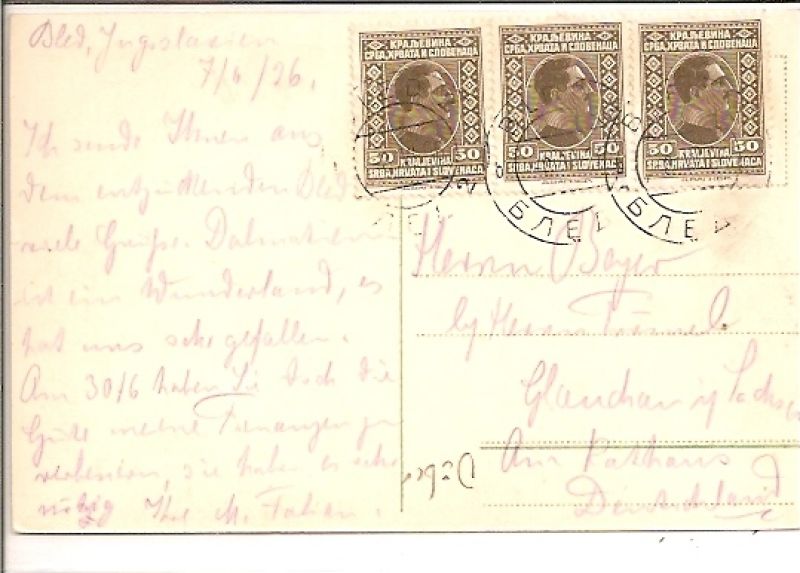 Bled, Jugoslavien
7/6/26.
Ich sende Ihnen aus
dem entzückenden Bled
viele Grüße. Dalmatien
ist ein Wunderland, es
hat uns sehr gefallen.
Am 30/6 haben Sie doch die
Güte meine Finanzen zu
verbessern, sie haben es sehr
nötig Ihr M. Fabian.
КРАЉЕВИНА
СРБА, ХРВАТА И СЛОВЕНАЦА
50 50
KRALJEVINA
SRBA, HRVATA I SLOVENACA
КРАЉЕВИНА
СРБА, ХРВАТА И СЛОВЕНАЦА
50 50
KRALJEVINA
SRBA, HRVATA I SLOVENACA
КРАЉЕВИНА
СРБА, ХРВАТА И СЛОВЕНАЦА
50 50
KRALJEVINA
SRBA, HRVATA I SLOVENACA
БЛЕД
БЛЕД
Herrn Beyer
by Herrn
Glauchau i/ Sachsen
Am Rathaus
Deutschland